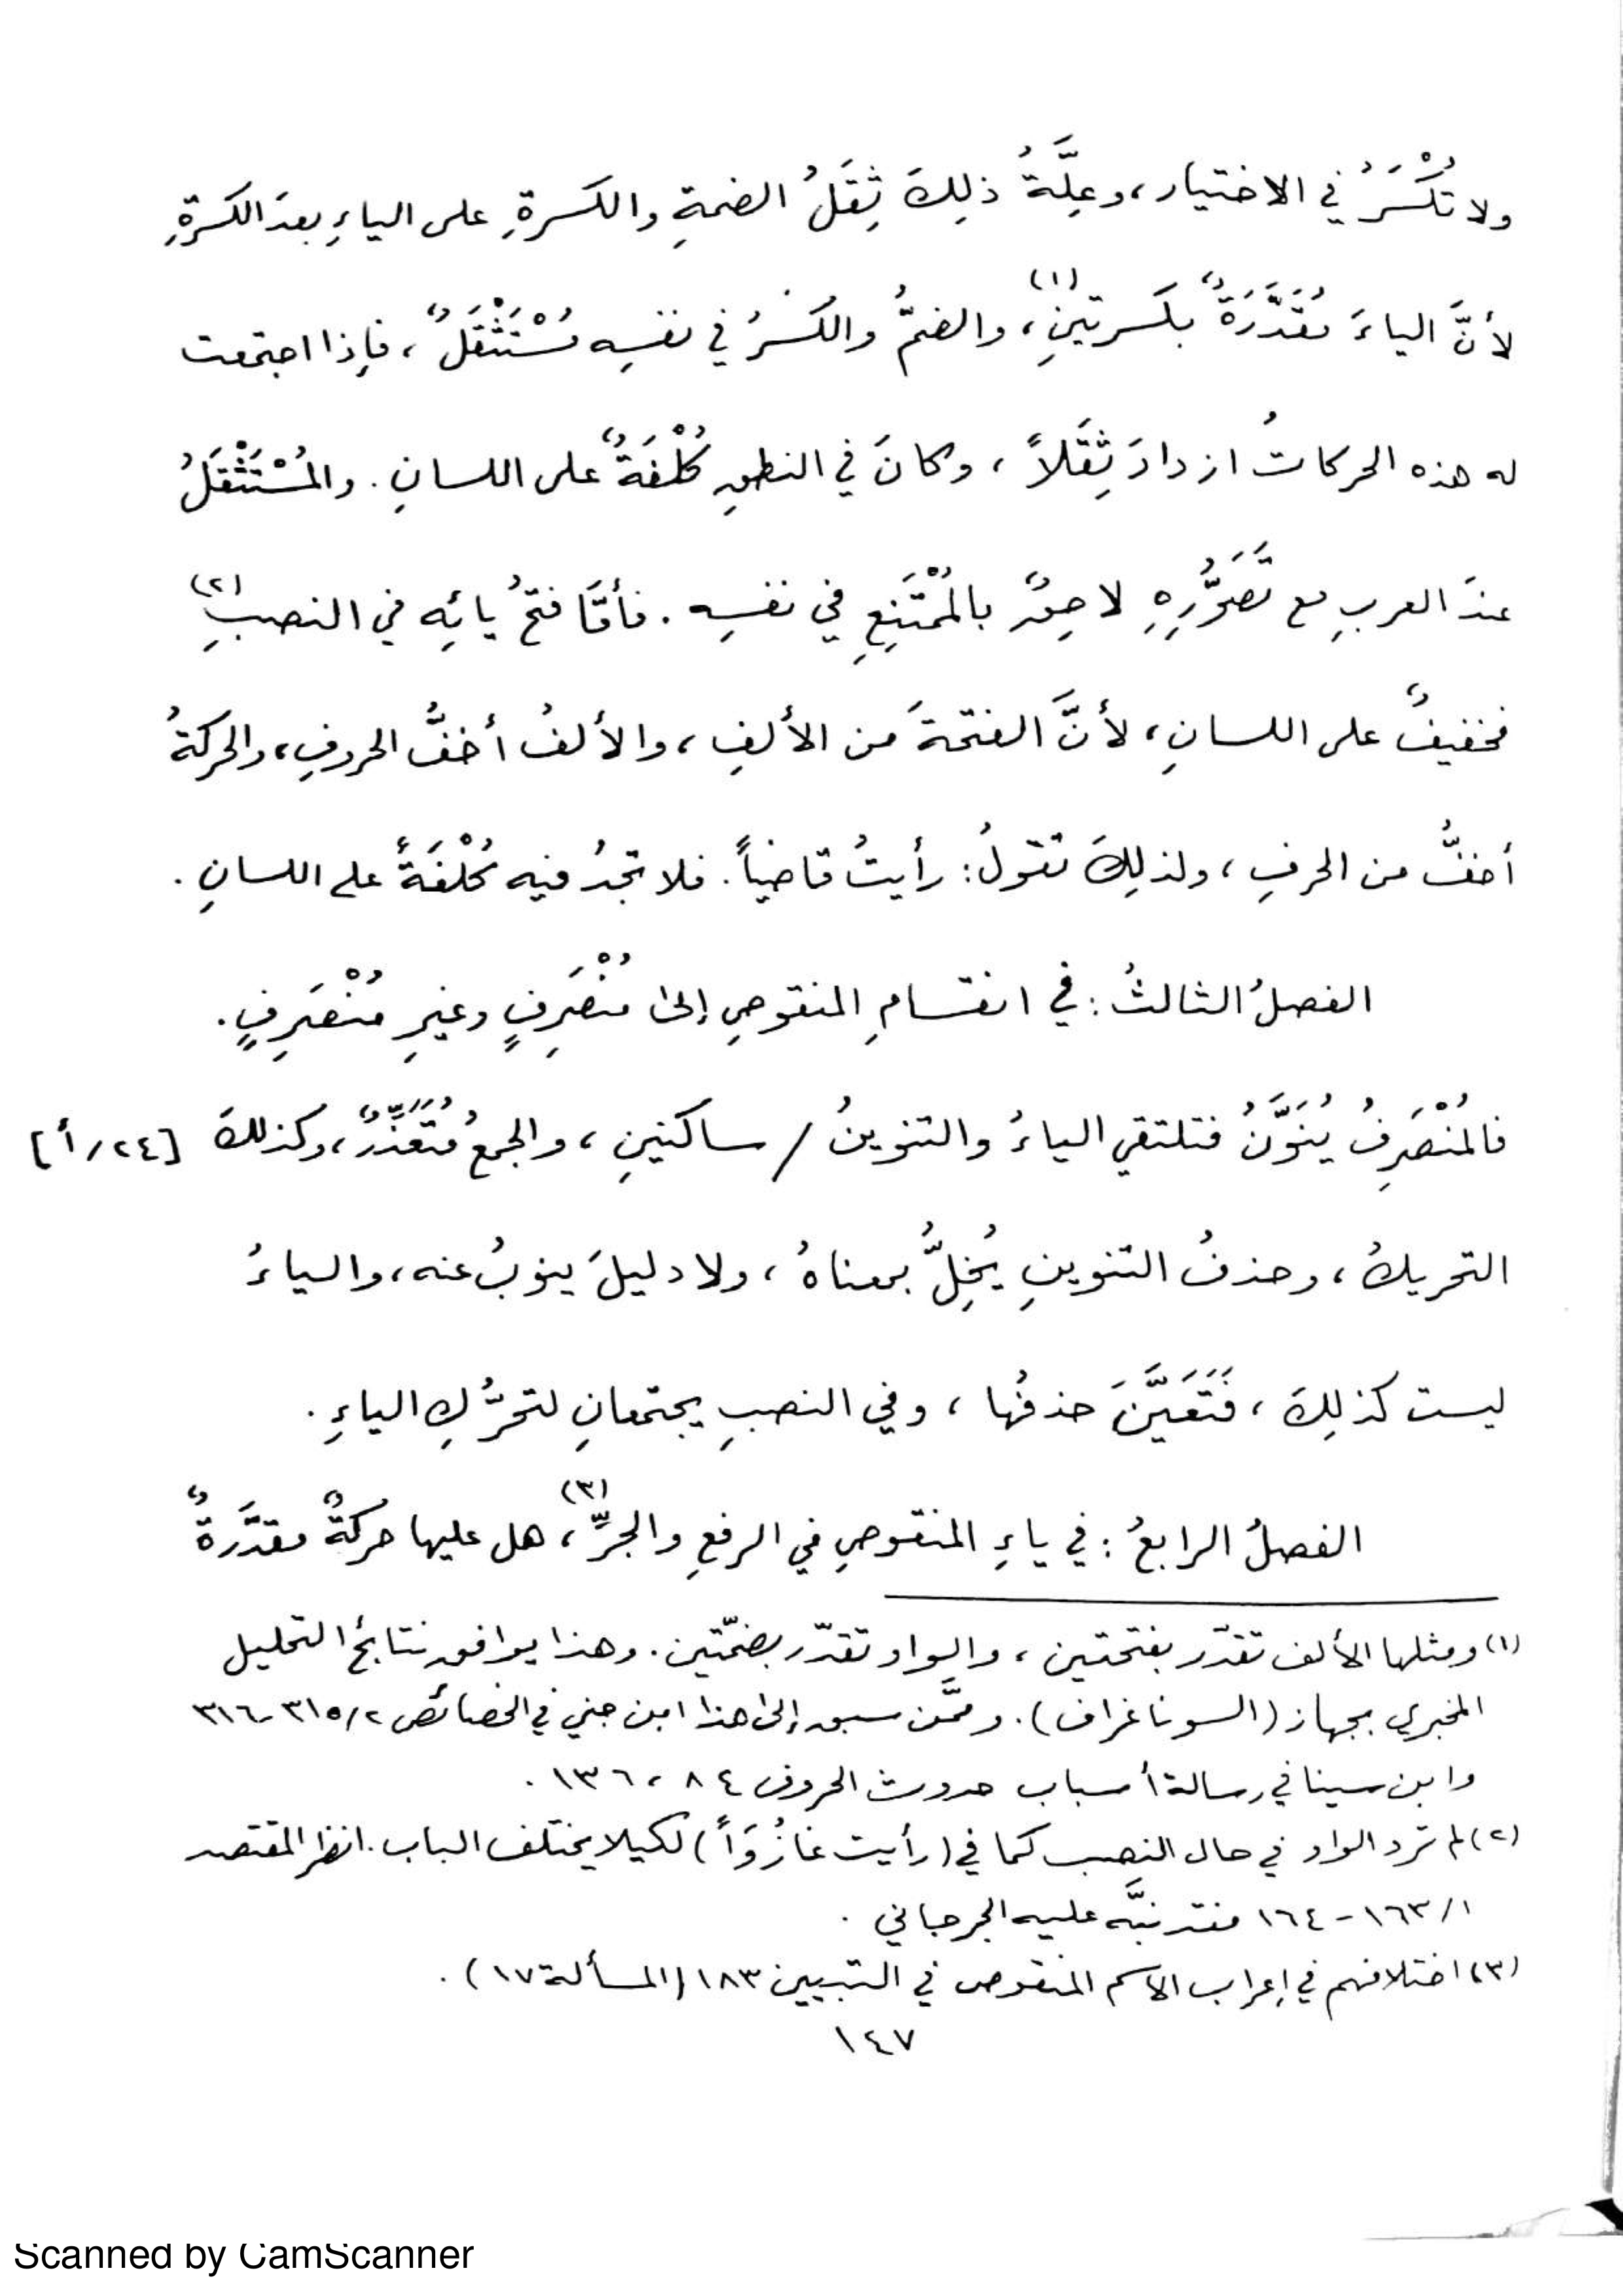 ولا تُكْسَرُ في الاختيار، وعِلَّةُ ذلِكَ ثِقَلُ الضمةِ والكسرةِ على الياءِ بعدَ الكسرةِ
لأنَّ الياءَ مُقَدَّرَةٌ بكسرتينِ(١)، والضمُّ والكسْرُ في نفسِه مُسْتَثْقَلٌ، فإذا اجتمعت
له هذه الحركاتُ ازدادَ ثِقَلاً، وكانَ في النطقِ كُلْفَةٌ على اللسانِ. والمُسْتَثْقَلُ
عندَ العربِ مع تَصَوُّرِهِ لاحِقٌ بالمُمْتَنِعِ في نفسِه. فأمَّا فتحُ يائِه في النصبِ(٢)
فخفيفٌ على اللسانِ، لأنَّ الفتحةَ من الألفِ، والألفُ أخفُّ الحروفِ، والحركةُ
أخفُّ من الحرفِ، ولذلِكَ تقولُ: رأيتُ قاضياً. فلا تجدُ فيه كُلْفَةً على اللسانِ.
الفصلُ الثالثُ: في انقسامِ المنقوصِ إلى مُنْصَرِفٍ وغيرِ مُنْصَرِفٍ.
فالمُنْصَرِفُ يُنَوَّنُ فتلتقي الياءُ والتنوينُ / ساكنينِ، والجمعُ مُتَعَذِّرٌ، وكذلكَ [٢٤/أ]
التحريكُ، وحذفُ التنوينِ يُخِلُّ بمعناهُ، ولا دليلَ ينوبُ عنه، والياءُ
ليست كذلِكَ، فَتَعَيَّنَ حذفُها، وفي النصبِ يجتمعانِ لتحرُّكِ الياءِ.
الفصلُ الرابعُ: في ياءِ المنقوصِ في الرفعِ والجرِّ(٣)، هل عليها حركةٌ مقدَّرةٌ
(١) ومثلها الألف تقدّر بفتحتين، والواو تقدّر بضمّتين. وهذا يوافق نتائج التحليل
المخبري بجهاز (السوناغراف). وممَّن سبق إلى هذا ابن جني في الخصائص ٢/٣١٥-٣١٦
وابن سينا في رسالة أسباب حدوث الحروف ٨٤، ١٣٦.
(٢) لم ترد الواو في حال النصب كما في (رأيت غازُوَاً) لكيلا يختلف الباب. انظر المقتصد
١/١٦٣-١٦٤ فقد نبَّه عليه الجرجاني.
(٣) اختلافهم في إعراب الاسم المنقوص في التبيين ١٨٣ (المسألة ١٧).
١٤٧
Scanned by CamScanner